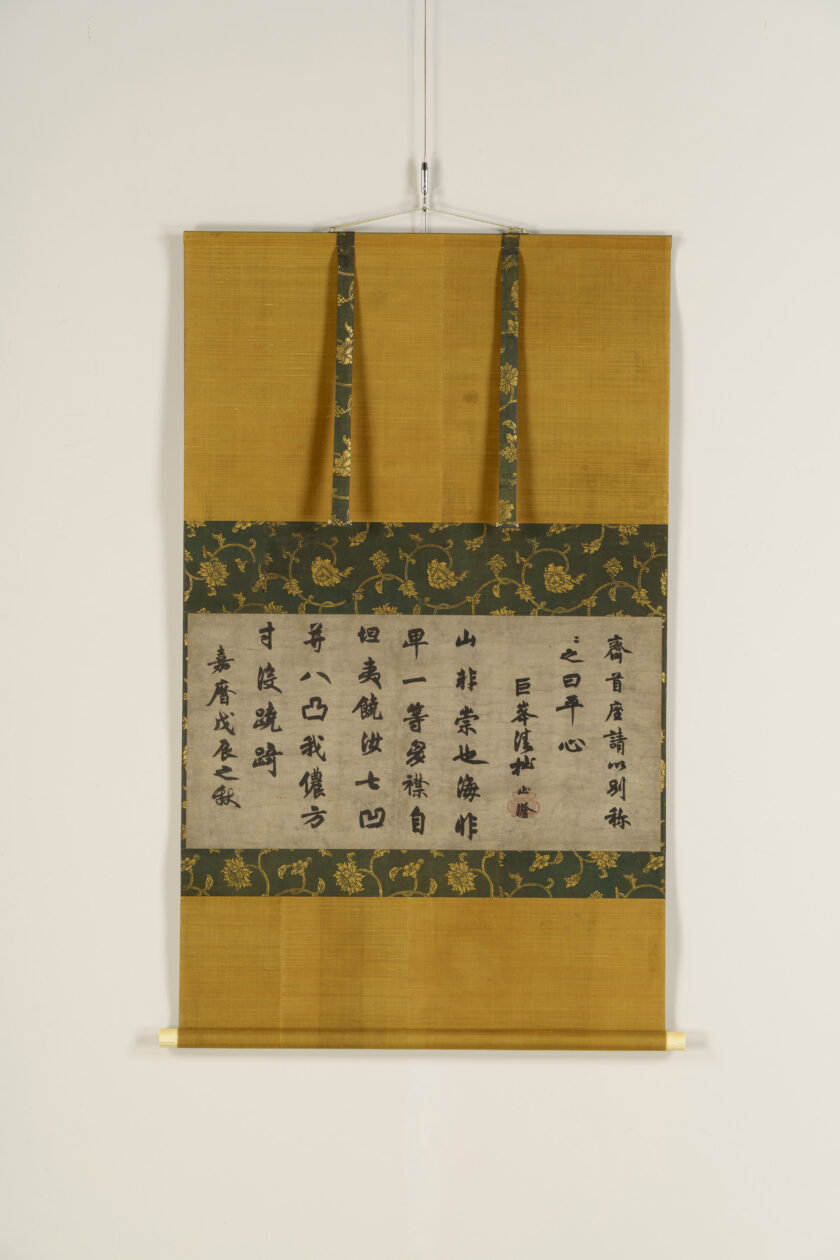 齊首座請以別称
〻之曰平心
巨清拙正澄
山非崇也海非
卑一等胷襟自
坦夷饒汝七凹
并八凸我儂方
寸没蹺踦
嘉暦戊辰之秋